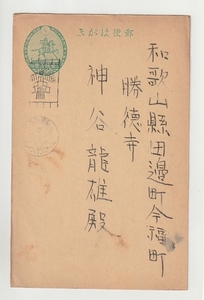 郵便はがき
和歌山縣田邊町今福町
勝德寺
神谷龍雄殿